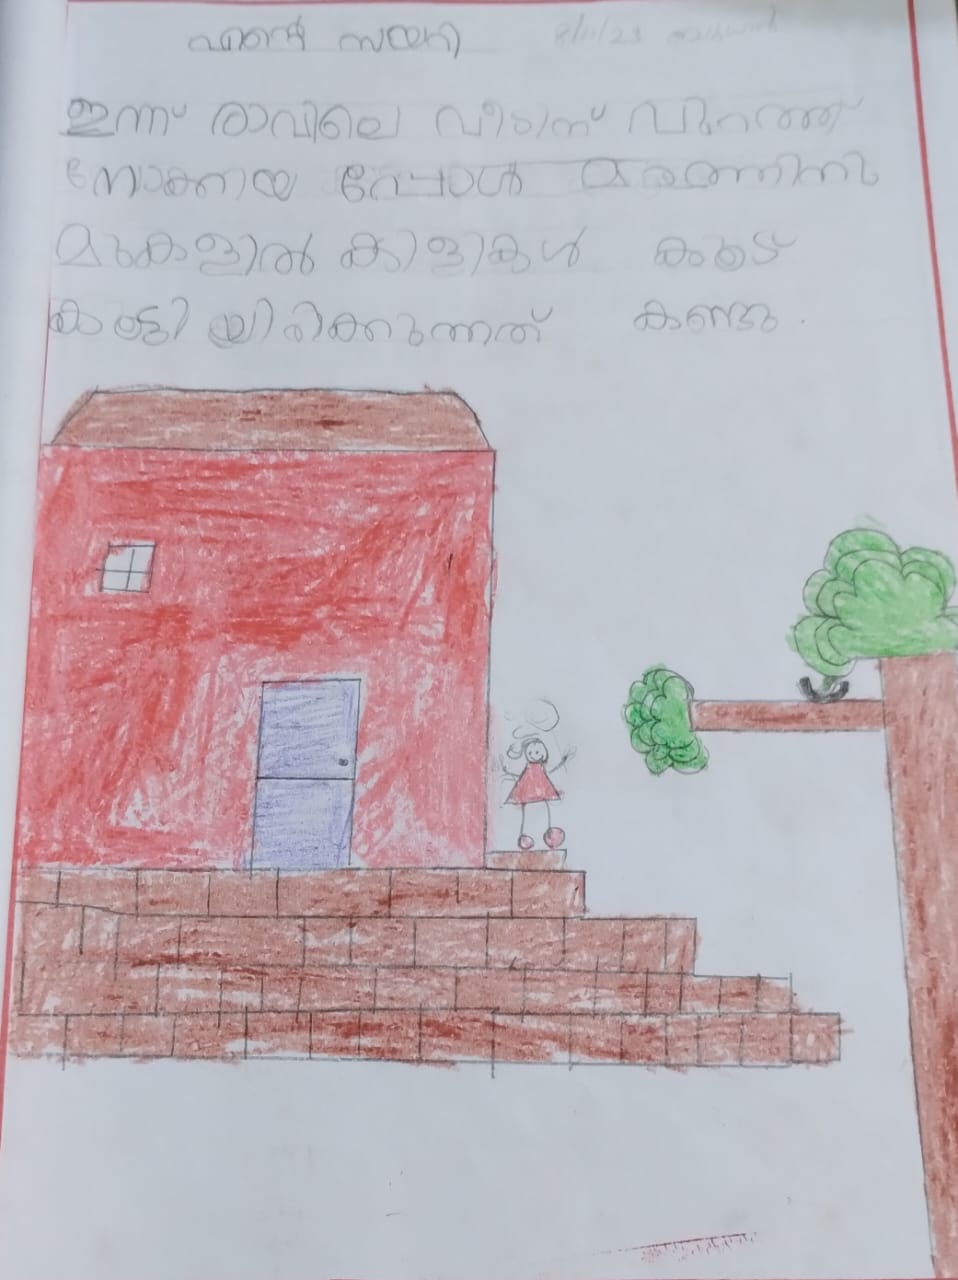 എന്റെ ഡയറി 8/11/23 ബുധൻ
ഇന്ന് രാവിലെ വീടിന് പുറത്ത്
നോക്കിയ പ്പോൾ മരത്തിനു
മുകളിൽ കിളികൾ കൂട്
കൂട്ടി യിരിക്കുന്നത് കണ്ടു.